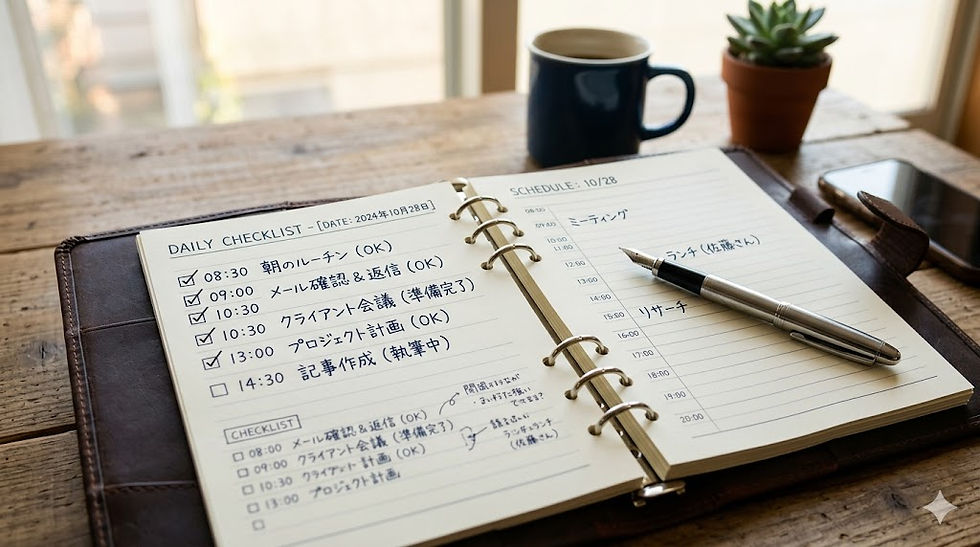 DAILY CHECKLIST - [DATE: 2024年10月28日]
08:30 朝のルーチン (OK)
09:00 メール確認&返信 (OK)
10:30
10:30 クライアント会議 (準備完了)
13:00 プロジェクト計画 (OK)
14:30 記事作成 (執筆中)
CHECKLIST
08:00 メール確認&返信 (OK)
09:00 クライアント会議 (準備完了)
10:30 クライアント 計画 (OK)
13:00 プロジェクト計画
ランチ
(佐藤さん)
SCHEDULE: 10/28
08:00
09:00 ミーティング
10:00
11:00
12:00 ランチ (佐藤さん)
13:00
14:00
15:00 リサーチ
16:00
17:00
18:00
19:00
20:00